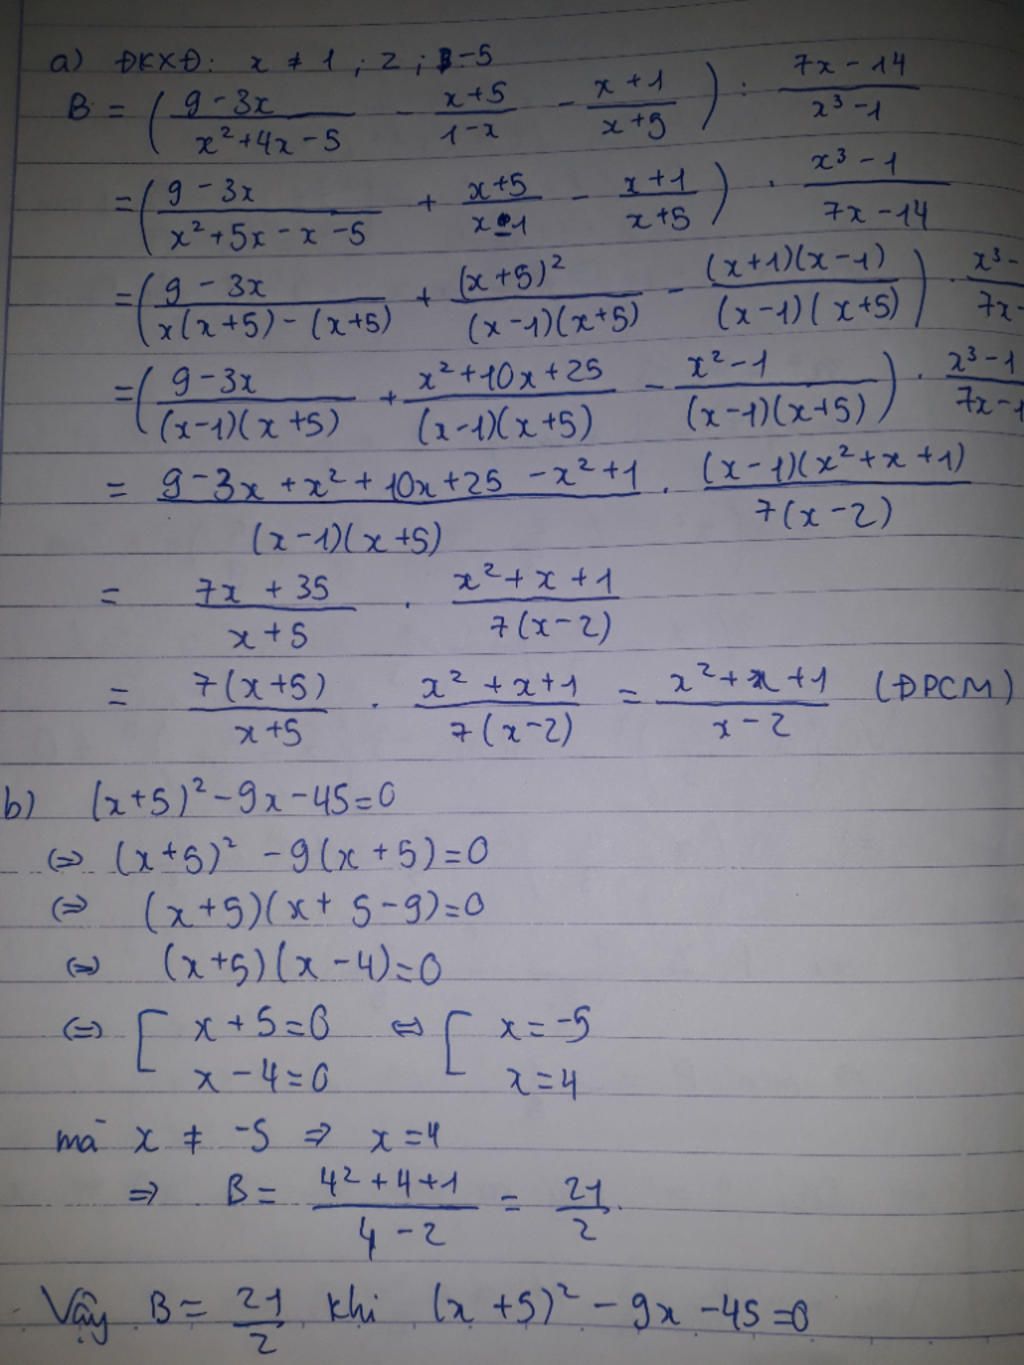 a) ĐKXĐ: x ≠ 1 ; 2 ; -5
B = ( (9 - 3x)/(x² + 4x - 5) - (x+5)/(1-x) - (x+1)/(x+5) ) : (7x - 14)/(x³ - 1)
= ( (9 - 3x)/(x² + 5x - x - 5) + (x+5)/(x-1) - (x+1)/(x+5) ) . (x³ - 1)/(7x - 14)
= ( (9 - 3x)/(x(x+5) - (x+5)) + (x+5)²/((x-1)(x+5)) - ((x+1)(x-1))/((x-1)(x+5)) ) . (x³ -)/(7x -)
= ( (9 - 3x)/((x-1)(x+5)) + (x² + 10x + 25)/((x-1)(x+5)) - (x² - 1)/((x-1)(x+5)) ) . (x³ - 1)/(7x - 1)
= (9 - 3x + x² + 10x + 25 - x² + 1)/((x-1)(x+5)) . ((x-1)(x² + x + 1))/(7(x-2))
= (7x + 35)/(x+5) . (x² + x + 1)/(7(x-2))
= (7(x+5))/(x+5) . (x² + x + 1)/(7(x-2)) = (x² + x + 1)/(x - 2) (ĐPCM)
b) (x+5)² - 9x - 45 = 0
⇔ (x+5)² - 9(x+5) = 0
⇔ (x+5)(x + 5 - 9) = 0
⇔ (x+5)(x - 4) = 0
⇔ [ x + 5 = 0 ⇔ [ x = -5
x - 4 = 0 x = 4
mà x ≠ -5 ⇒ x = 4
⇒ B = (4² + 4 + 1)/(4 - 2) = 21/2.
Vậy B = 21/2 khi (x + 5)² - 9x - 45 = 0